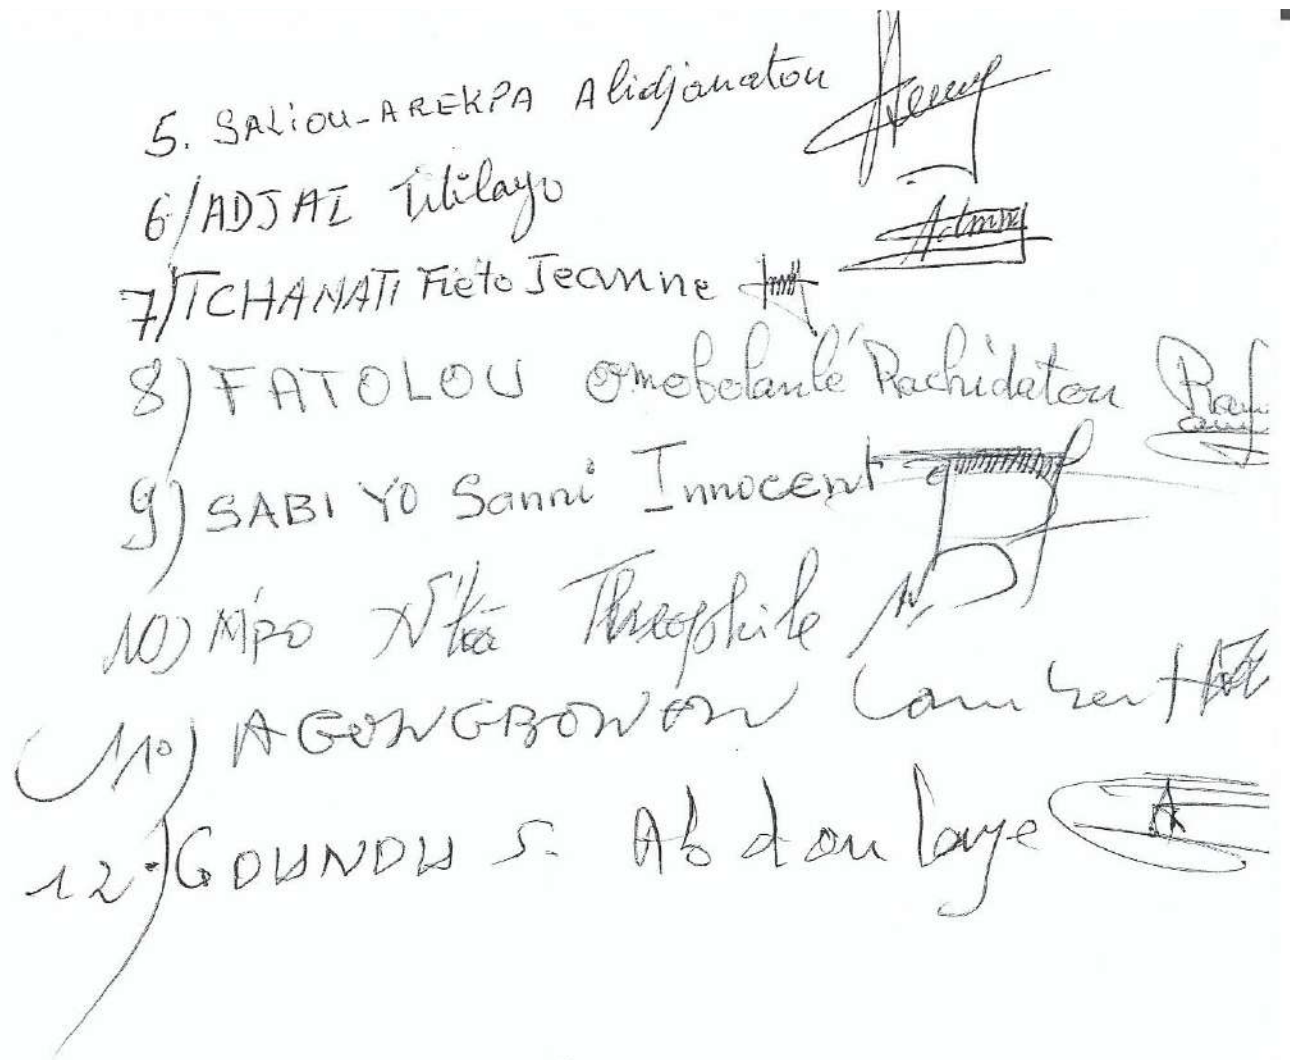 5. SALIOU-AREKPA Alidjanatou
6/ADJAI Titilayo
7)TCHANATI Fieto Jeanne
8) FATOLOU Omobolanlé Rachidatou
9) SABI YO Sanni Innocent
10) M'PO N'tia Théophile
AGONGBONON Lambert
12.) GOUNOU S. Abdoulaye